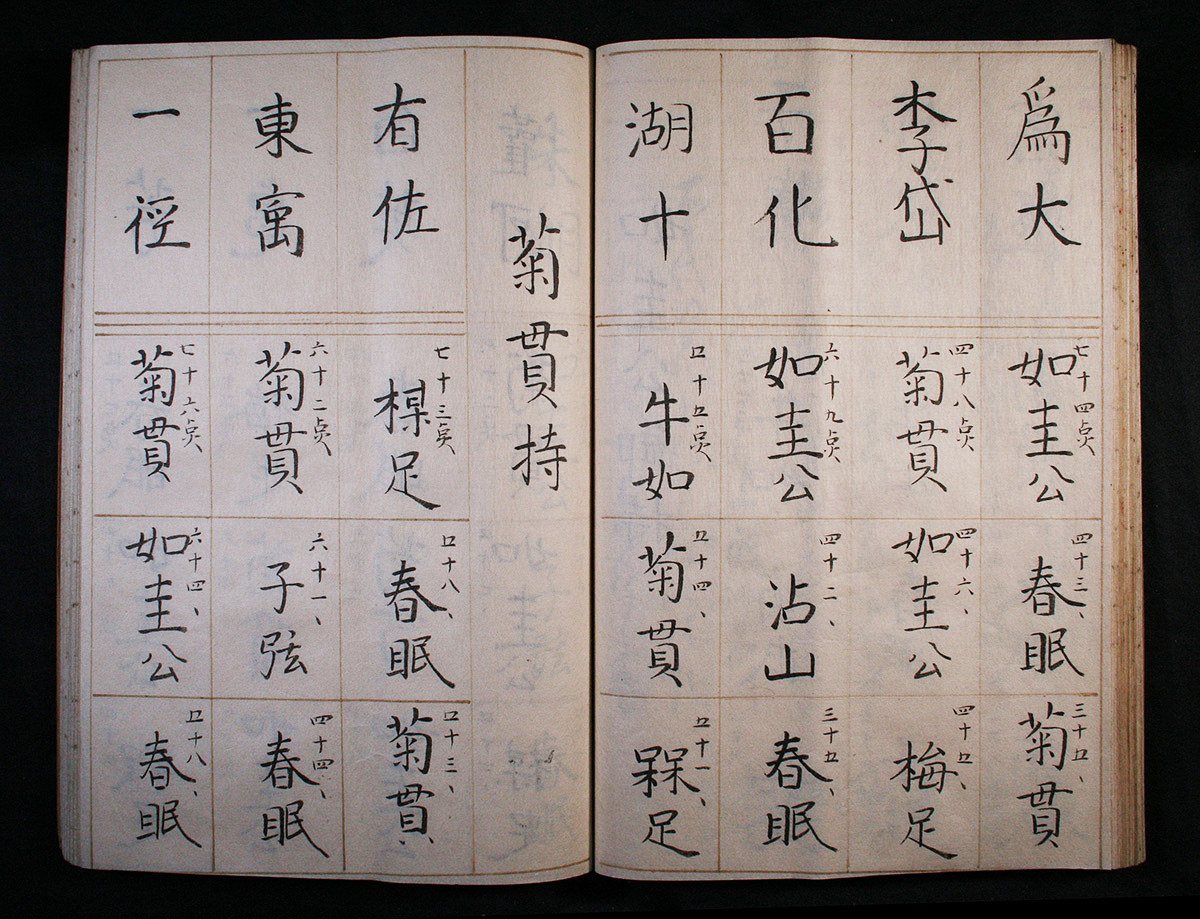 爲大
七十四点
如圭公
四十三、
春眠
三十五、
菊貫
李岱
四十八点
菊貫
四十六、
如圭公
四十五、
梅足
百化
六十九点
如圭公
四十二、
沾山
三十五、
春眠
湖十
五十五点
牛如
五十四、
菊貫
五十一、
槑足
菊貫持
有佐
七十三点
楳足
五十八、
春眠
五十三、
菊貫
東寓
六十二点
菊貫
六十一、
子弦
四十四、
春眠
一徑
七十六点
菊貫
六十四、
如圭公
五十八、
春眠